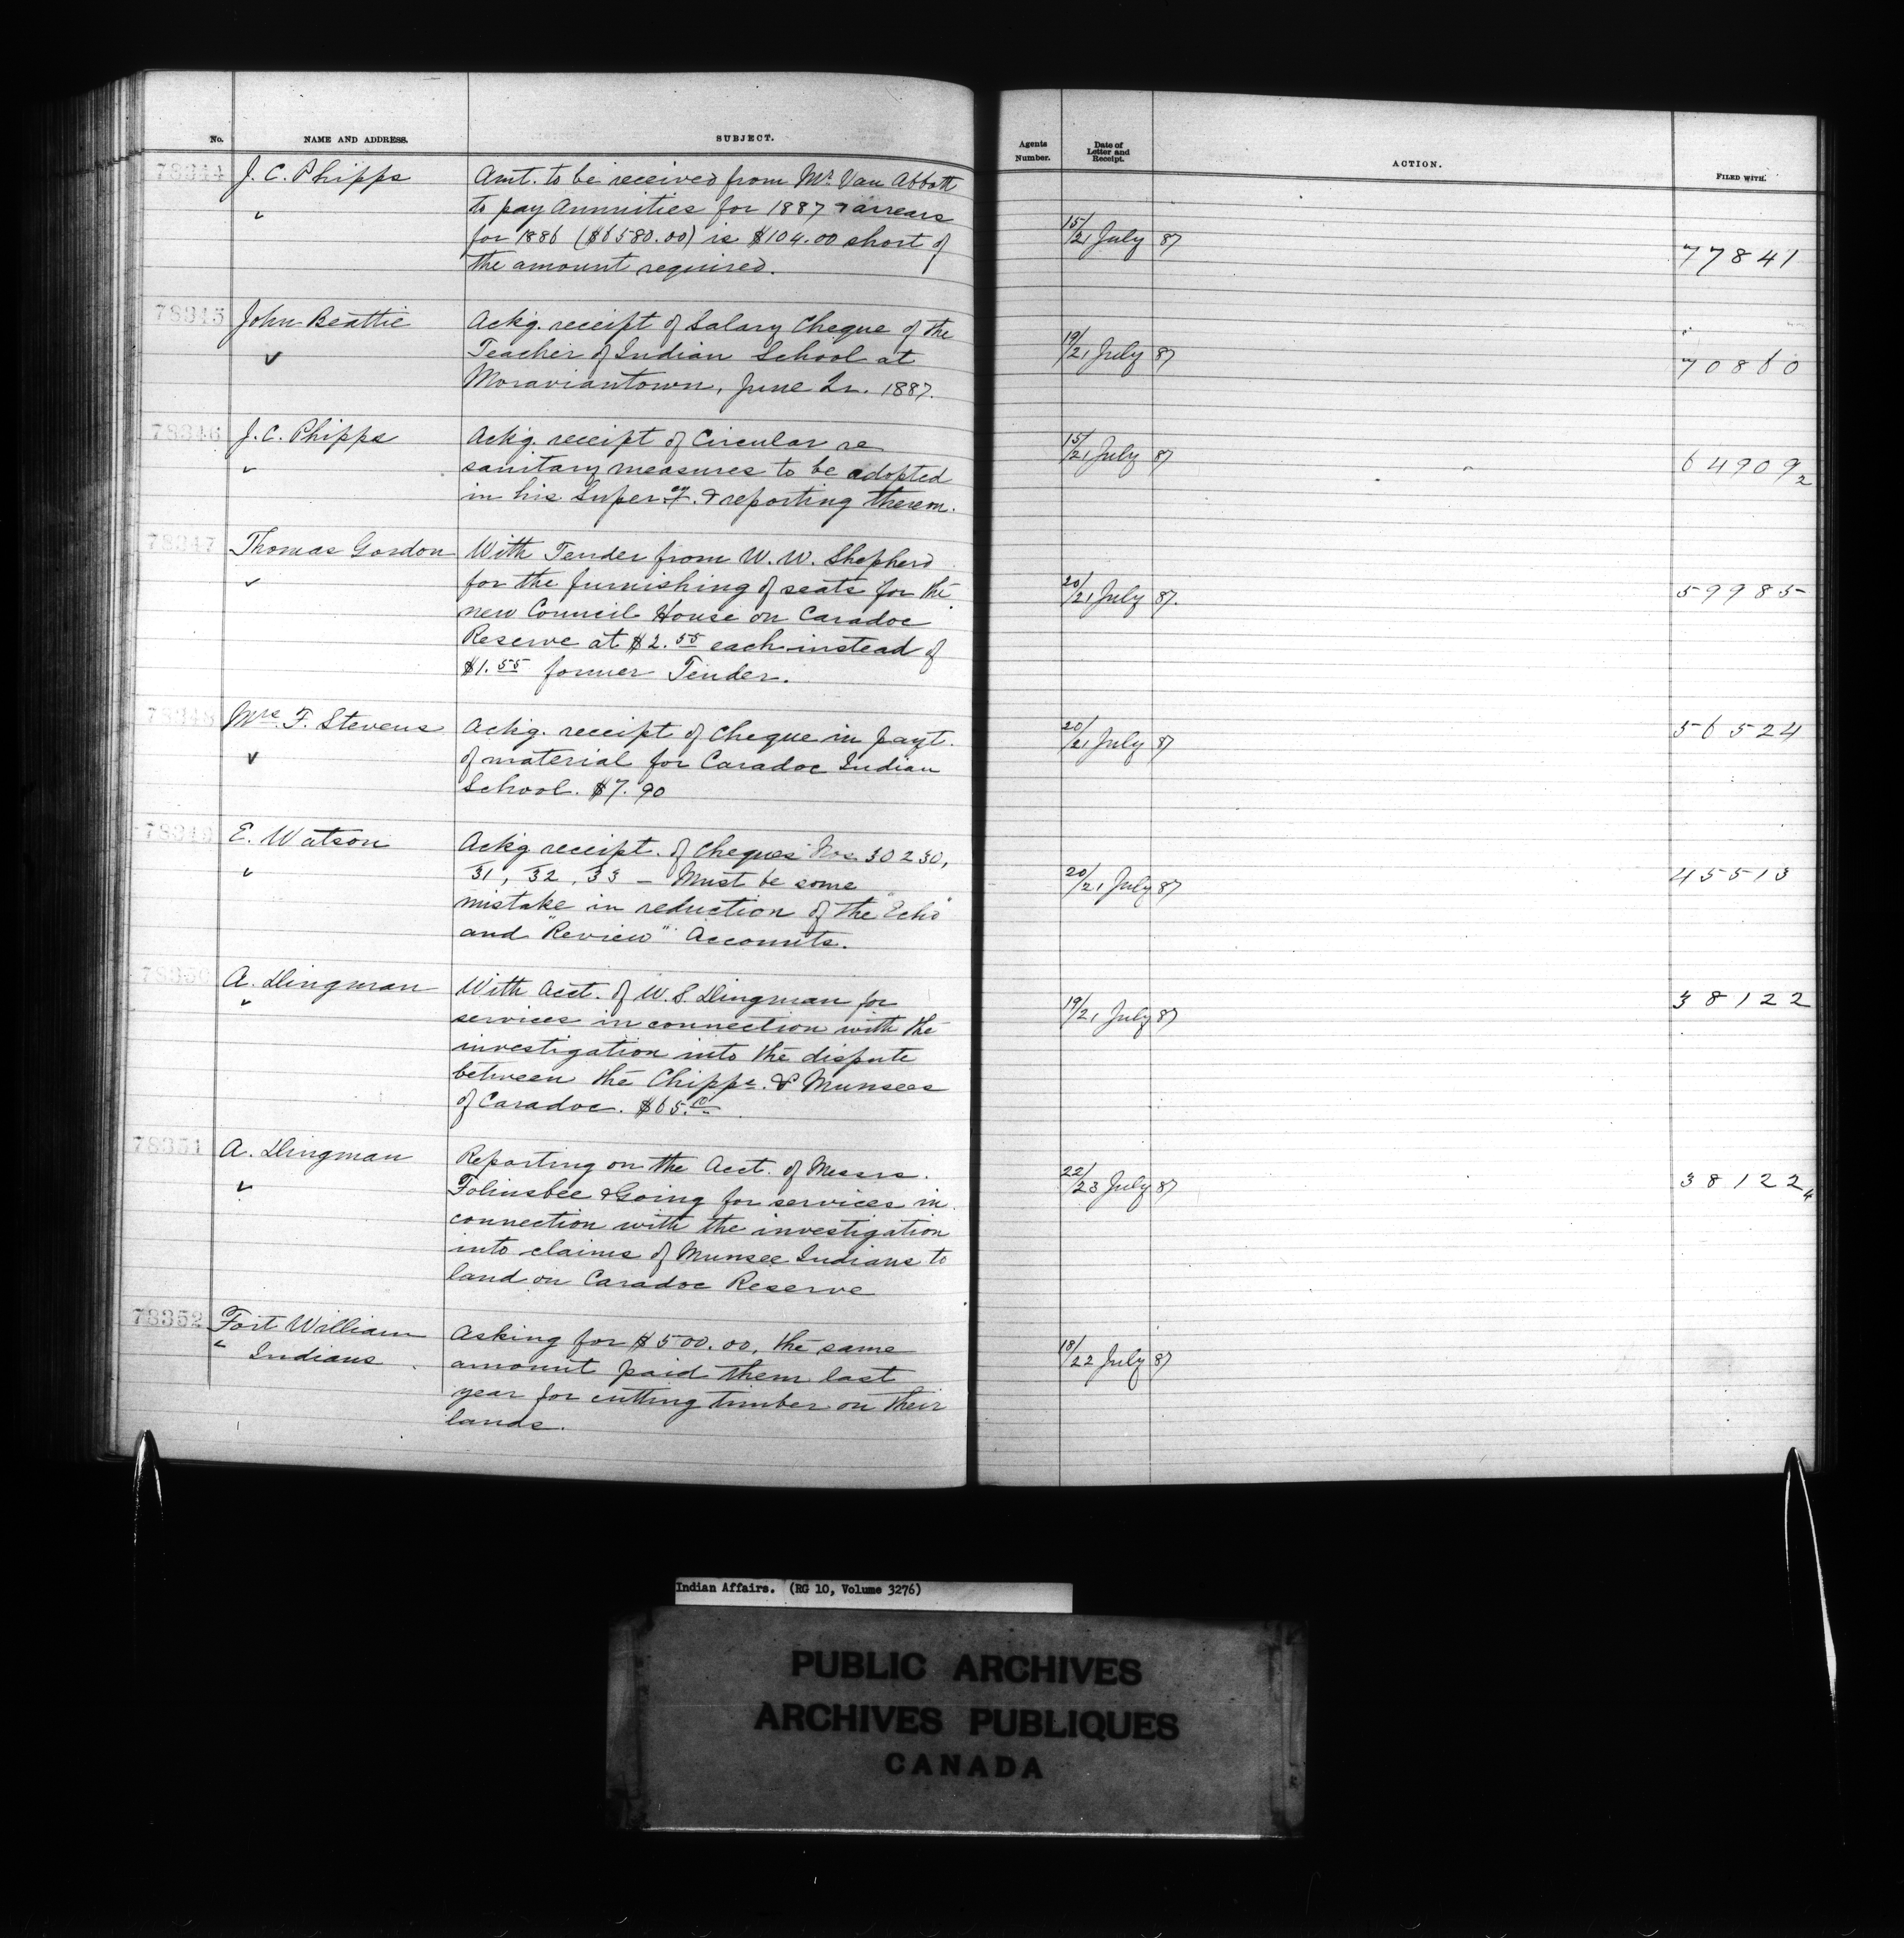 No.
NAME AND ADDRESS.
SUBJECT.
Agents Number.
Date of Letter and Receipt.
ACTION.
FILED WITH.
78344
J. C. Phipps
Amt. to be received from Mr. Van Abbott
to pay Annuities for 1887 & arrears
for 1886 ($6580.00) is $104.00 short of
the amount required.
15/21 July 87
77841
78345
John Beattie
Ackg. receipt of Salary Cheque of the
Teacher of Indian School at
Moraviantown, June Qr. 1887.
19/21 July 87
70860
78346
J. C. Phipps
Ackg. receipt of Circular re
sanitary measures to be adopted
in his Super.cy. & reporting thereon.
15/21 July 87
64909 2
78347
Thomas Gordon
With Tender from W. W. Shepherd
for the furnishing of seats for the
new Council House on Caradoc
Reserve at $2.55 each instead of
$1.55 former Tender.
20/21 July 87.
59985
78348
Mrs. F. Stevens
Ackg. receipt of Cheque in payt.
of material for Caradoc Indian
School. $7.90
20/21 July 87
56524
78349
E. Watson
Ackg receipt of Cheques Nos. 30230,
31, 32, 33 – Must be some
mistake in reduction of the "Echo"
and "Review" Accounts.
20/21 July 87
45513
78350
A. Dingman
With Acct. of W. S. Dingman for
services in connection with the
investigation into the dispute
between the Chipps. & Munsees
of Caradoc. $65.00
19/21 July 87
38122
78351
A. Dingman
Reporting on the Acct. of Messrs.
Folinsbee & Going for services in
connection with the investigation
into claims of Munsee Indians to
land on Caradoc Reserve
22/23 July 87
38122 4
78352
Fort William
Indians
Asking for $500.00, the same
amount paid them last
year for cutting timber on their
lands.
18/22 July 87
Indian Affairs. (RG 10, Volume 3276)
PUBLIC ARCHIVES
ARCHIVES PUBLIQUES
CANADA